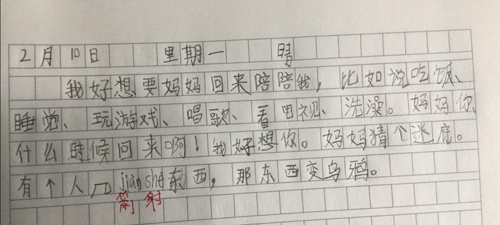 2月10日 星期一 晴
我好想要妈妈回来陪陪我，比如说吃饭、
睡觉、玩游戏、唱歌、看电视、洗澡。妈妈你
什么时候回来啊！我好想你。妈妈猜个迷底。
有个人几jianshe东西，那东西变乌鸦。
箭射